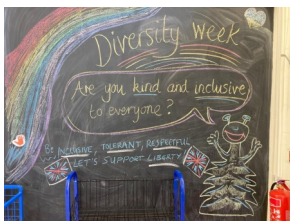 Diversity Week
Are you kind and inclusive
to everyone?
Be INCLUSIVE, TOLERANT, RESPECTFUL
LET'S SUPPORT LIBERTY